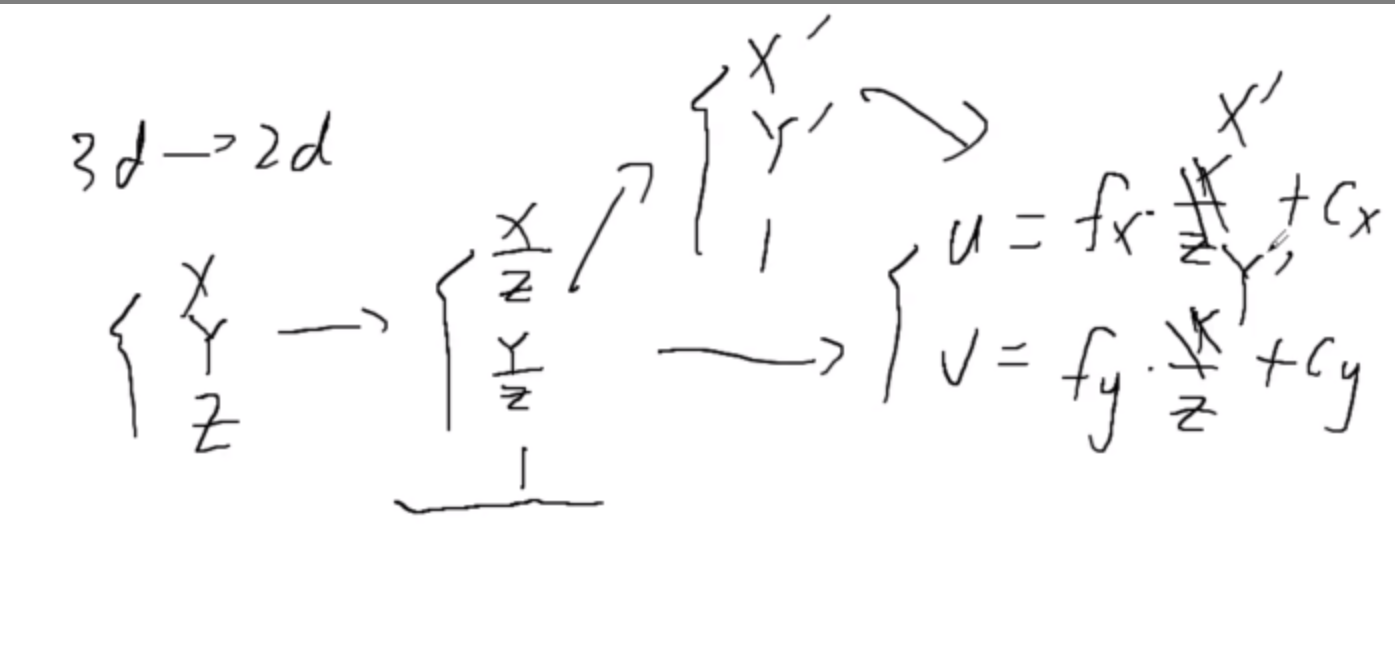 3d → 2d
X
Y
Z
→
X/Z
Y/Z
1
↗
X'
Y'
1
↘
→
u = fx · X/Z X' + Cx
v = fy · Y/Z Y' + Cy